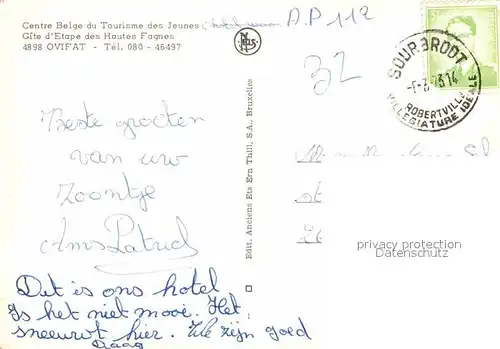 Centre Belge du Tourisme des Jeunes (hotel waar
Gîte d'Etape des Hautes Fagnes
4898 OVIFAT - Tél. 080 - 46497
A.P 112
32
SOURBRODT
ROBERTVILLE
VILLEGIATURE IDEALE
Beste groeten
van uw
Zoontje
Edit. Anciens Ets Ern Thill, S.A., Bruxelles
privacy protection
Datenschutz
Dit is ons hotel
Is het niet mooi. Het
sneeuwt hier. We zijn goed